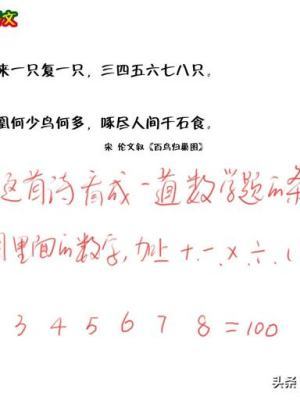 文
来一只复一只，三四五六七八只。
凰何少鸟何多，啄尽人间千石食。
宋 伦文叙《百鸟归巢图》
这首诗看成一道数学题的条
用里面的数字，加上 + - × ÷ (
3 4 5 6 7 8 = 100
头条